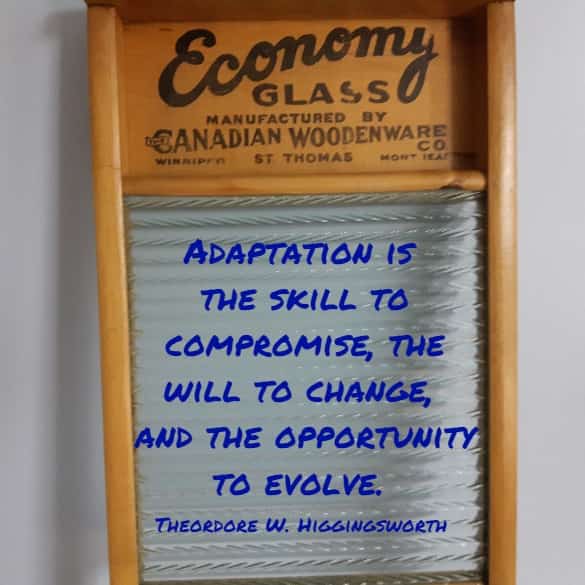 Economy
GLASS
MANUFACTURED BY
THE CANADIAN WOODENWARE
CO
WINNIPEG ST THOMAS MONTREAL
Adaptation is
the skill to
compromise, the
will to change,
and the opportunity
to evolve.
Theordore W. Higgingsworth